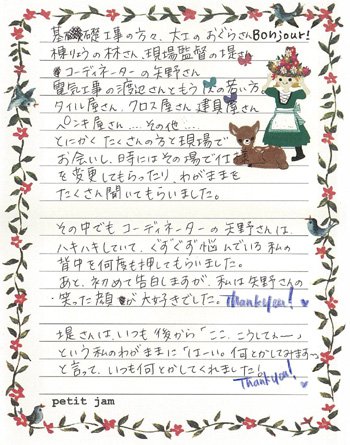 基礎工事の方々、大工のおぐらさん
Bonjour!
棟りょうの林さん、現場監督の堤さん
コーディネーターの矢野さん
電気工事の渡辺さんともう1人の若い方
タイル屋さん、クロス屋さん 建具屋さん
ペンキ屋さん……その他……
とにかくたくさんの方と現場で
お会いし、時にはその場で仕事
を変更してもらったり、わがままを
たくさん聞いてもらいました。
その中でもコーディネーターの矢野さんは、
ハキハキしていて、ぐずぐず悩んでいる私の
背中を何度も押してもらいました。
あと、初めて告白しますが、私は矢野さんの
笑った顔が大好きでした。Thank you!
堤さんは、いつも後から「ここ、こうしてぇー」
という私のわがままに「はーい。何とかしてみますっ」
と言って、いつも何とかしてくれました!
Thank you!
petit jam